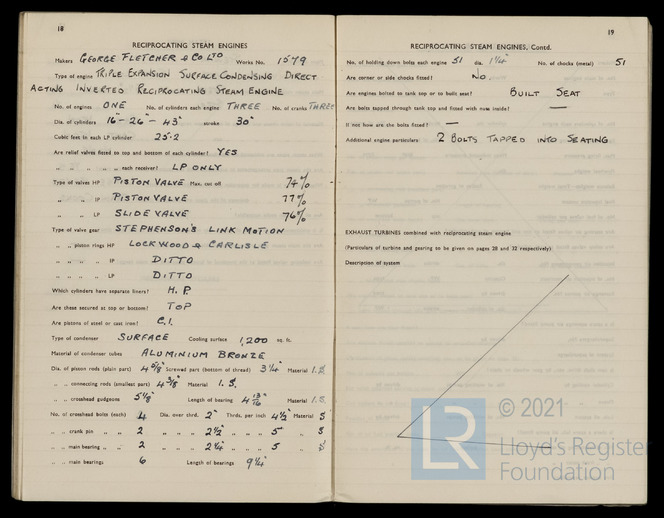 18
RECIPROCATING STEAM ENGINES
Makers GEORGE FLETCHER & CO LTD Works No. 1579
Type of engine TRIPLE EXPANSION SURFACE CONDENSING DIRECT
ACTING INVERTED RECIPROCATING STEAM ENGINE
No. of engines ONE No. of cylinders each engine THREE No. of cranks THREE
Dia. of cylinders 16" - 26" - 43" stroke 30"
Cubic feet in each LP cylinder 25.2
Are relief valves fitted to top and bottom of each cylinder? YES
" " " " " each receiver? LP ONLY
Type of valves HP PISTON VALVE Max. cut off 74%
" " IP PISTON VALVE 77%
" " LP SLIDE VALVE 76%
Type of valve gear STEPHENSON'S LINK MOTION
" " piston rings HP LOCKWOOD & CARLISLE
" " " " IP DITTO
" " " " LP DITTO
Which cylinders have separate liners? H.P.
Are these secured at top or bottom? TOP
Are pistons of steel or cast iron? C.I.
Type of condenser SURFACE Cooling surface 1,200 sq. ft.
Material of condenser tubes ALUMINIUM BRONZE
Dia. of piston rods (plain part) 4 5/8" Screwed part (bottom of thread) 3 1/4" Material I.S.
" " connecting rods (smallest part) 4 3/8" Material I.S.
" " crosshead gudgeons 5 1/8" Length of bearing 4 13/16" Material I.S.
No. of crosshead bolts (each) 4 Dia. over thrd. 2" Thrds. per inch 4 1/2" Material S
" " crank pin " 2 " " " 2 1/2" " " " 5" " S
" " main bearing " 2 " " " 2 1/4" " " " 5 " S
" " main bearings 6 Length of bearings 9 1/4"
19
RECIPROCATING STEAM ENGINES, Contd.
No. of holding down bolts each engine 51 dia. 1 1/4" No. of chocks (metal) 51
Are corner or side chocks fitted? NO.
Are engines bolted to tank top or to built seat? BUILT SEAT
Are bolts tapped through tank top and fitted with nuts inside? —
If not how are the bolts fitted? —
Additional engine particulars 2 BOLTS TAPPED INTO SEATING
EXHAUST TURBINES combined with reciprocating steam engine
(Particulars of turbine and gearing to be given on pages 28 and 32 respectively)
Description of system
LR
© 2021
Lloyd's Register
Foundation